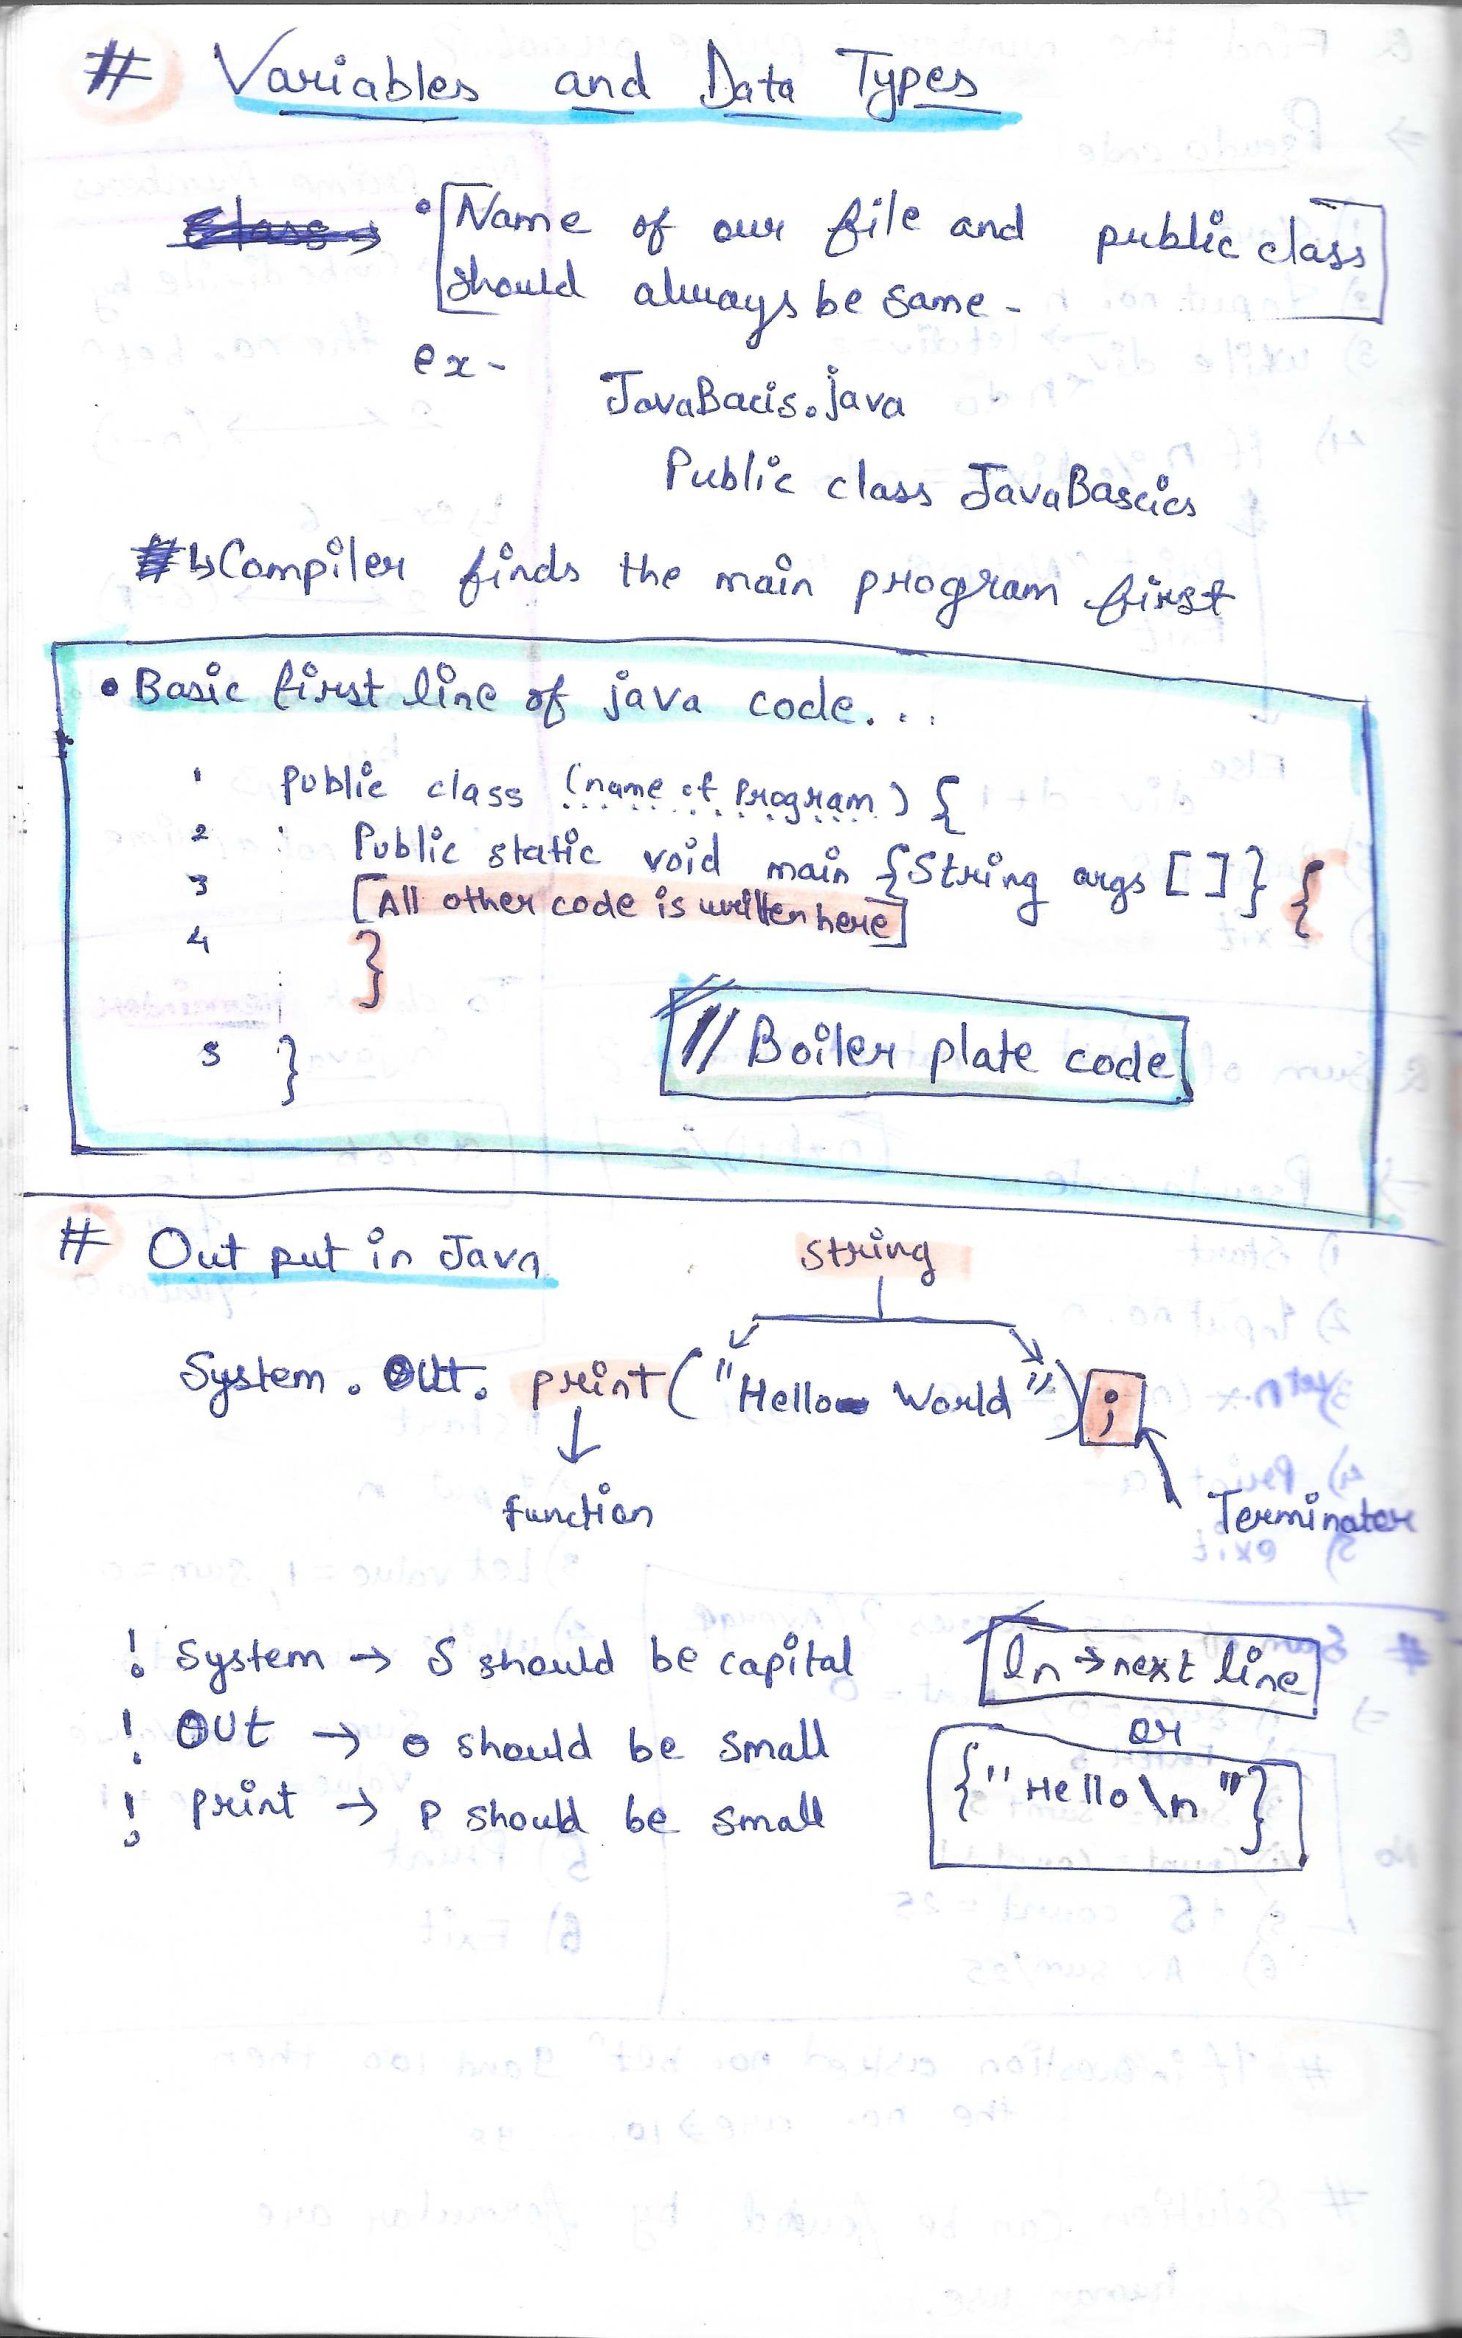 # Variables and Data Types
• Name of our file and public class
should always be same -
ex -
JavaBacis.java
Public class JavaBascics
↳ Compiler finds the main program first
• Basic first line of java code...
1 Public class (name of Program) {
2 Public static void main {String args []} {
3 [All other code is written here]
4 }
5 }
// Boiler plate code
# Out put in Java
string
System . Out. print ("Hello World") ;
function
Terminator
! System → S should be capital
! Out → o should be small
! print → P should be small
ln → next line
or
{"Hello \n "}